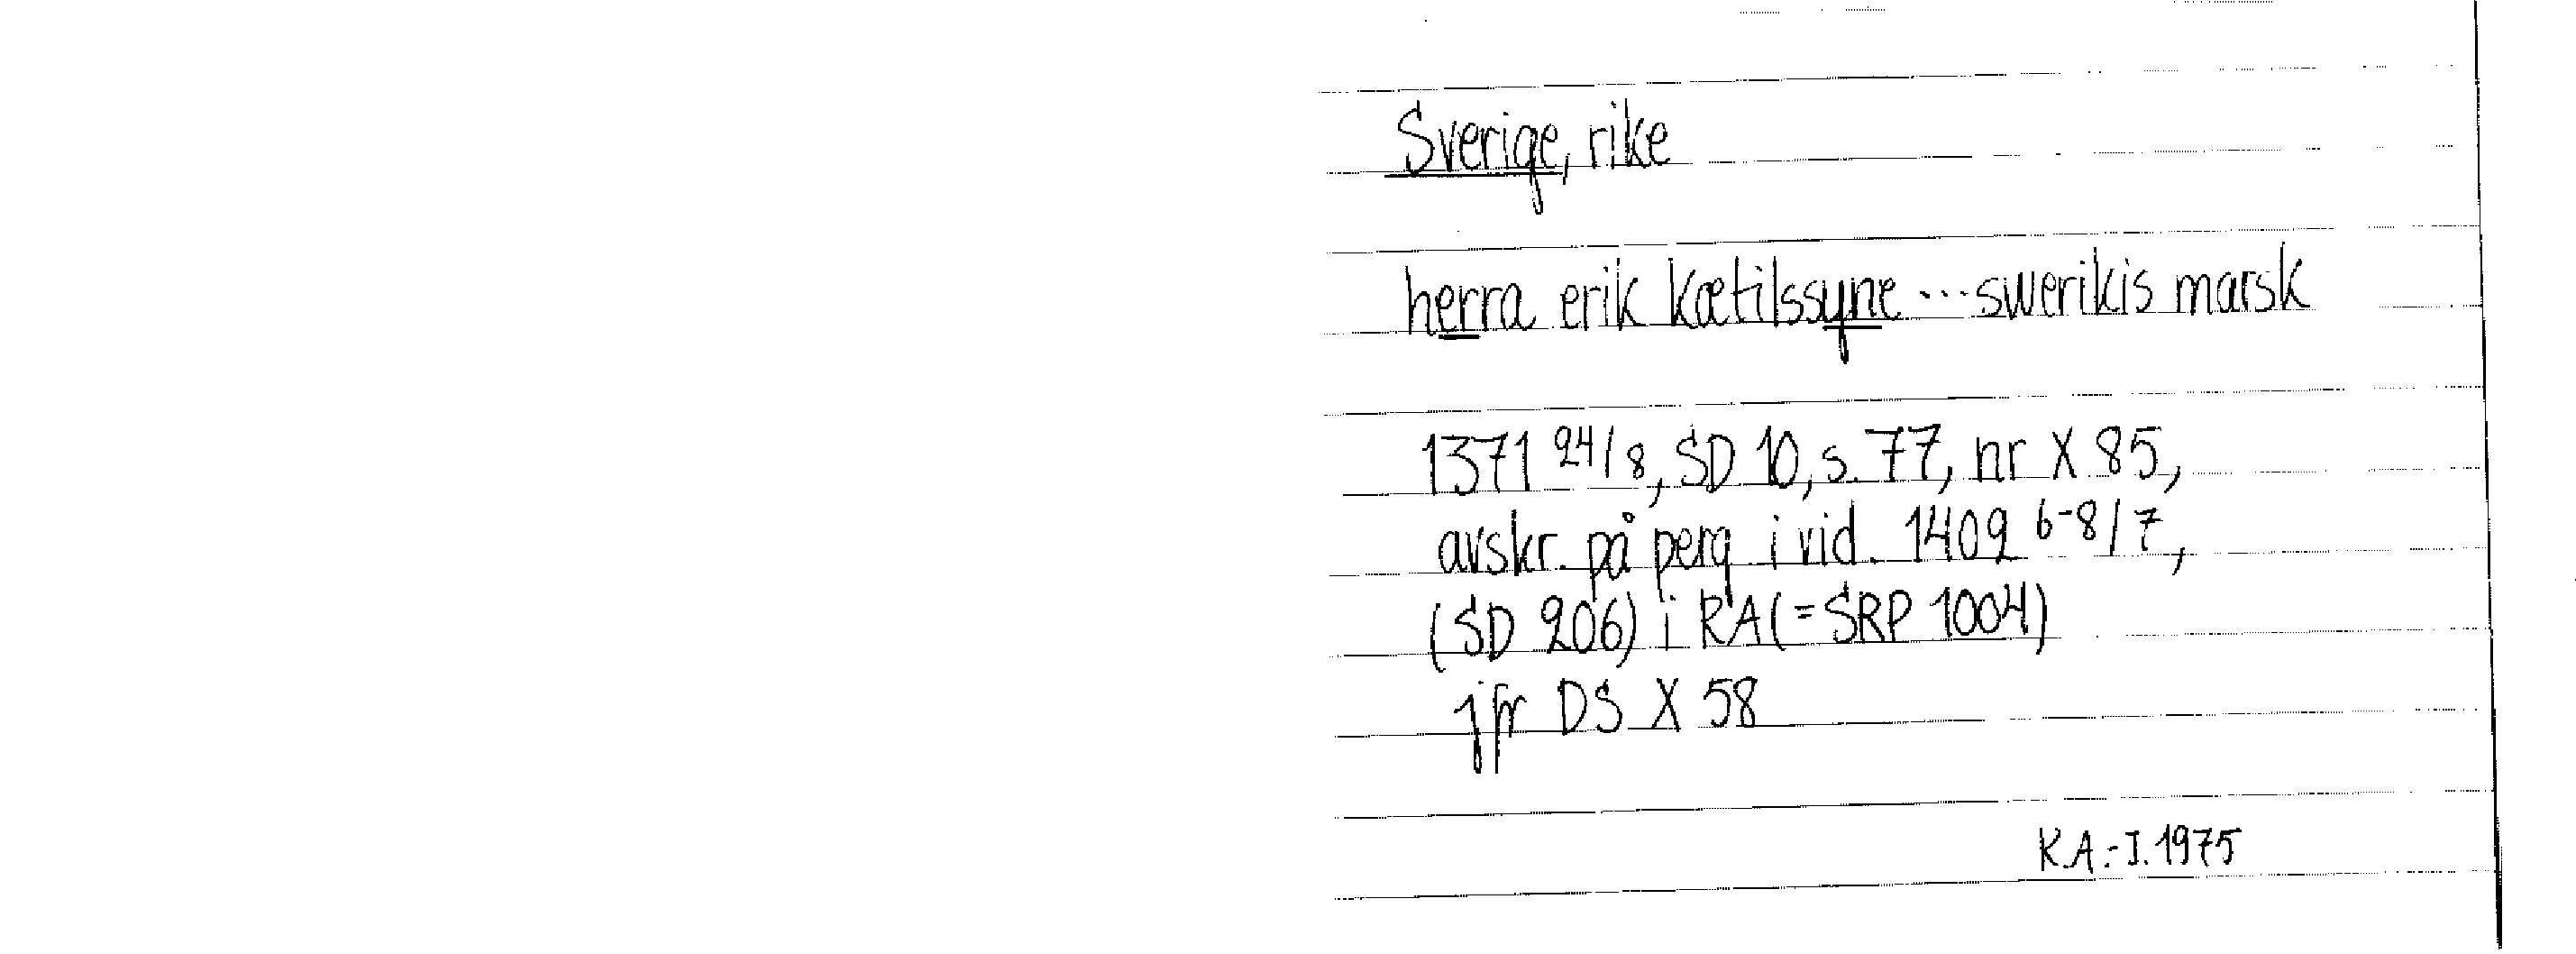 Sverige, rike
herra erik kætilssyne ... swerikis marsk
1371 24/8, SD 10, s. 77, nr X 85,
avskr. på perg i vid. 1409 6-8/7,
(SD 206) i RA (= SRP 1004)
jfr DS X 58
K.A:-I. 1975